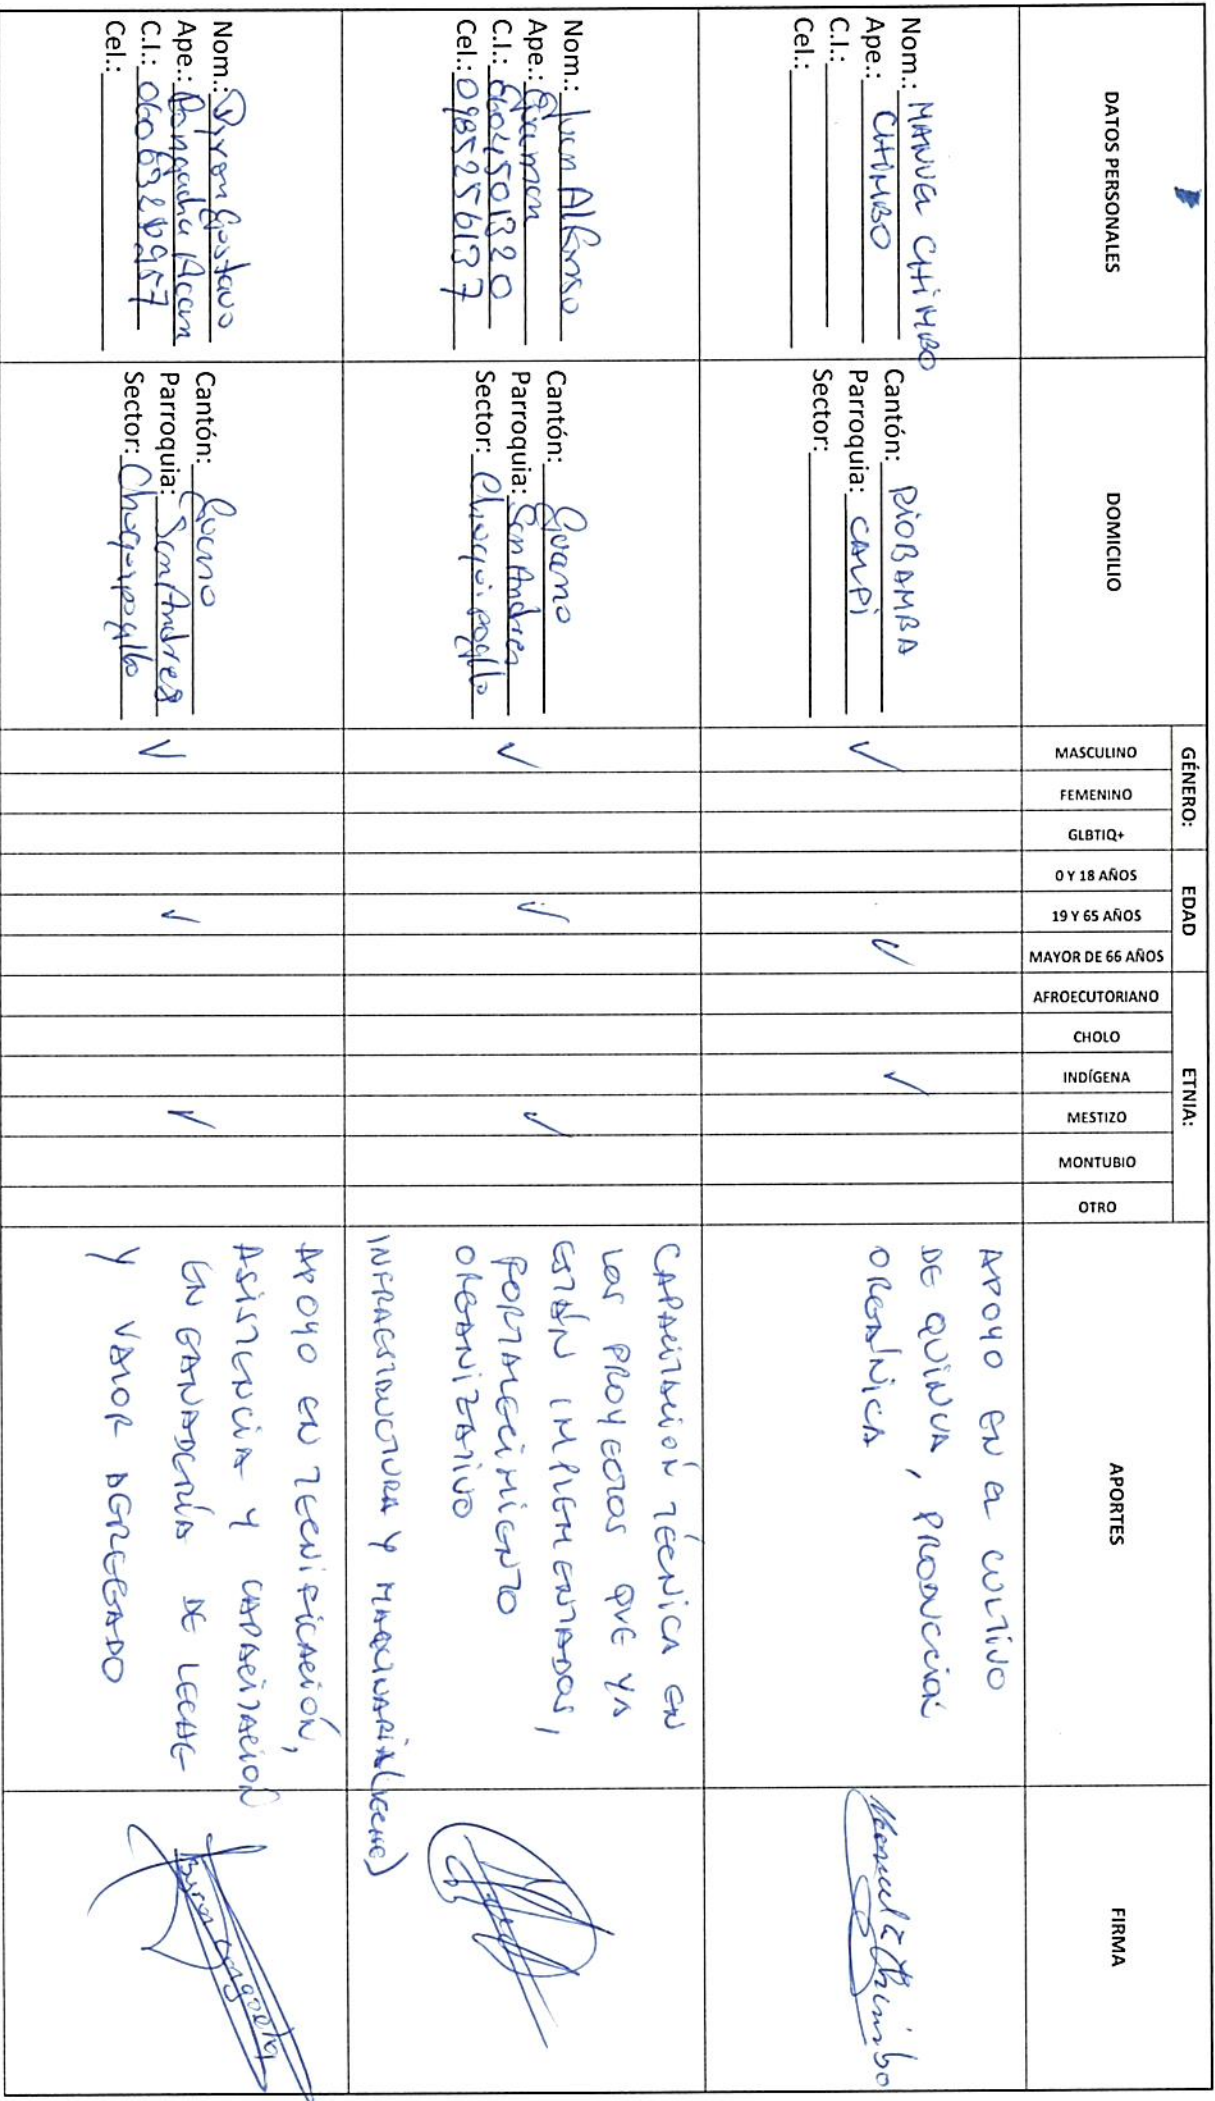 DATOS PERSONALES
DOMICILIO
GÉNERO:
MASCULINO
FEMENINO
GLBTIQ+
EDAD
0 Y 18 AÑOS
19 Y 65 AÑOS
MAYOR DE 66 AÑOS
ETNIA:
AFROECUTORIANO
CHOLO
INDÍGENA
MESTIZO
MONTUBIO
OTRO
APORTES
FIRMA
Nom.: MANUEL CHIMBO
Ape.: CHIMBO
C.I.:
Cel.:
Cantón: RIOBAMBA
Parroquia: CALPI
Sector:
APOYO EN EL CULTIVO
DE QUINUA, PRODUCCIÓN
ORGÁNICA
Manuel Chimbo
Nom.: Juan Alfonso
Ape.: Guaman
C.I.: 0604501320
Cel.: 0985256137
Cantón: Guano
Parroquia: San Andres
Sector: Chuquipogllo
CAPACITACIÓN TÉCNICA EN
LOS PROYECTOS QUE YA
ESTÁN IMPLEMENTADOS,
FORTALECIMIENTO
ORGANIZATIVO
INFRAESTRUCTURA Y MAQUINARIA (LECHE)
Nom.: Byron Gustavo
Ape.: Pongacha
C.I.:
Cel.:
Cantón: Guano
Parroquia: San Andres
Sector: Chuquipogllo
APOYO EN TECNIFICACIÓN,
ASISTENCIA Y CAPACITACIÓN
EN GANADERÍA DE LECHE
Y VALOR AGREGADO
Byron